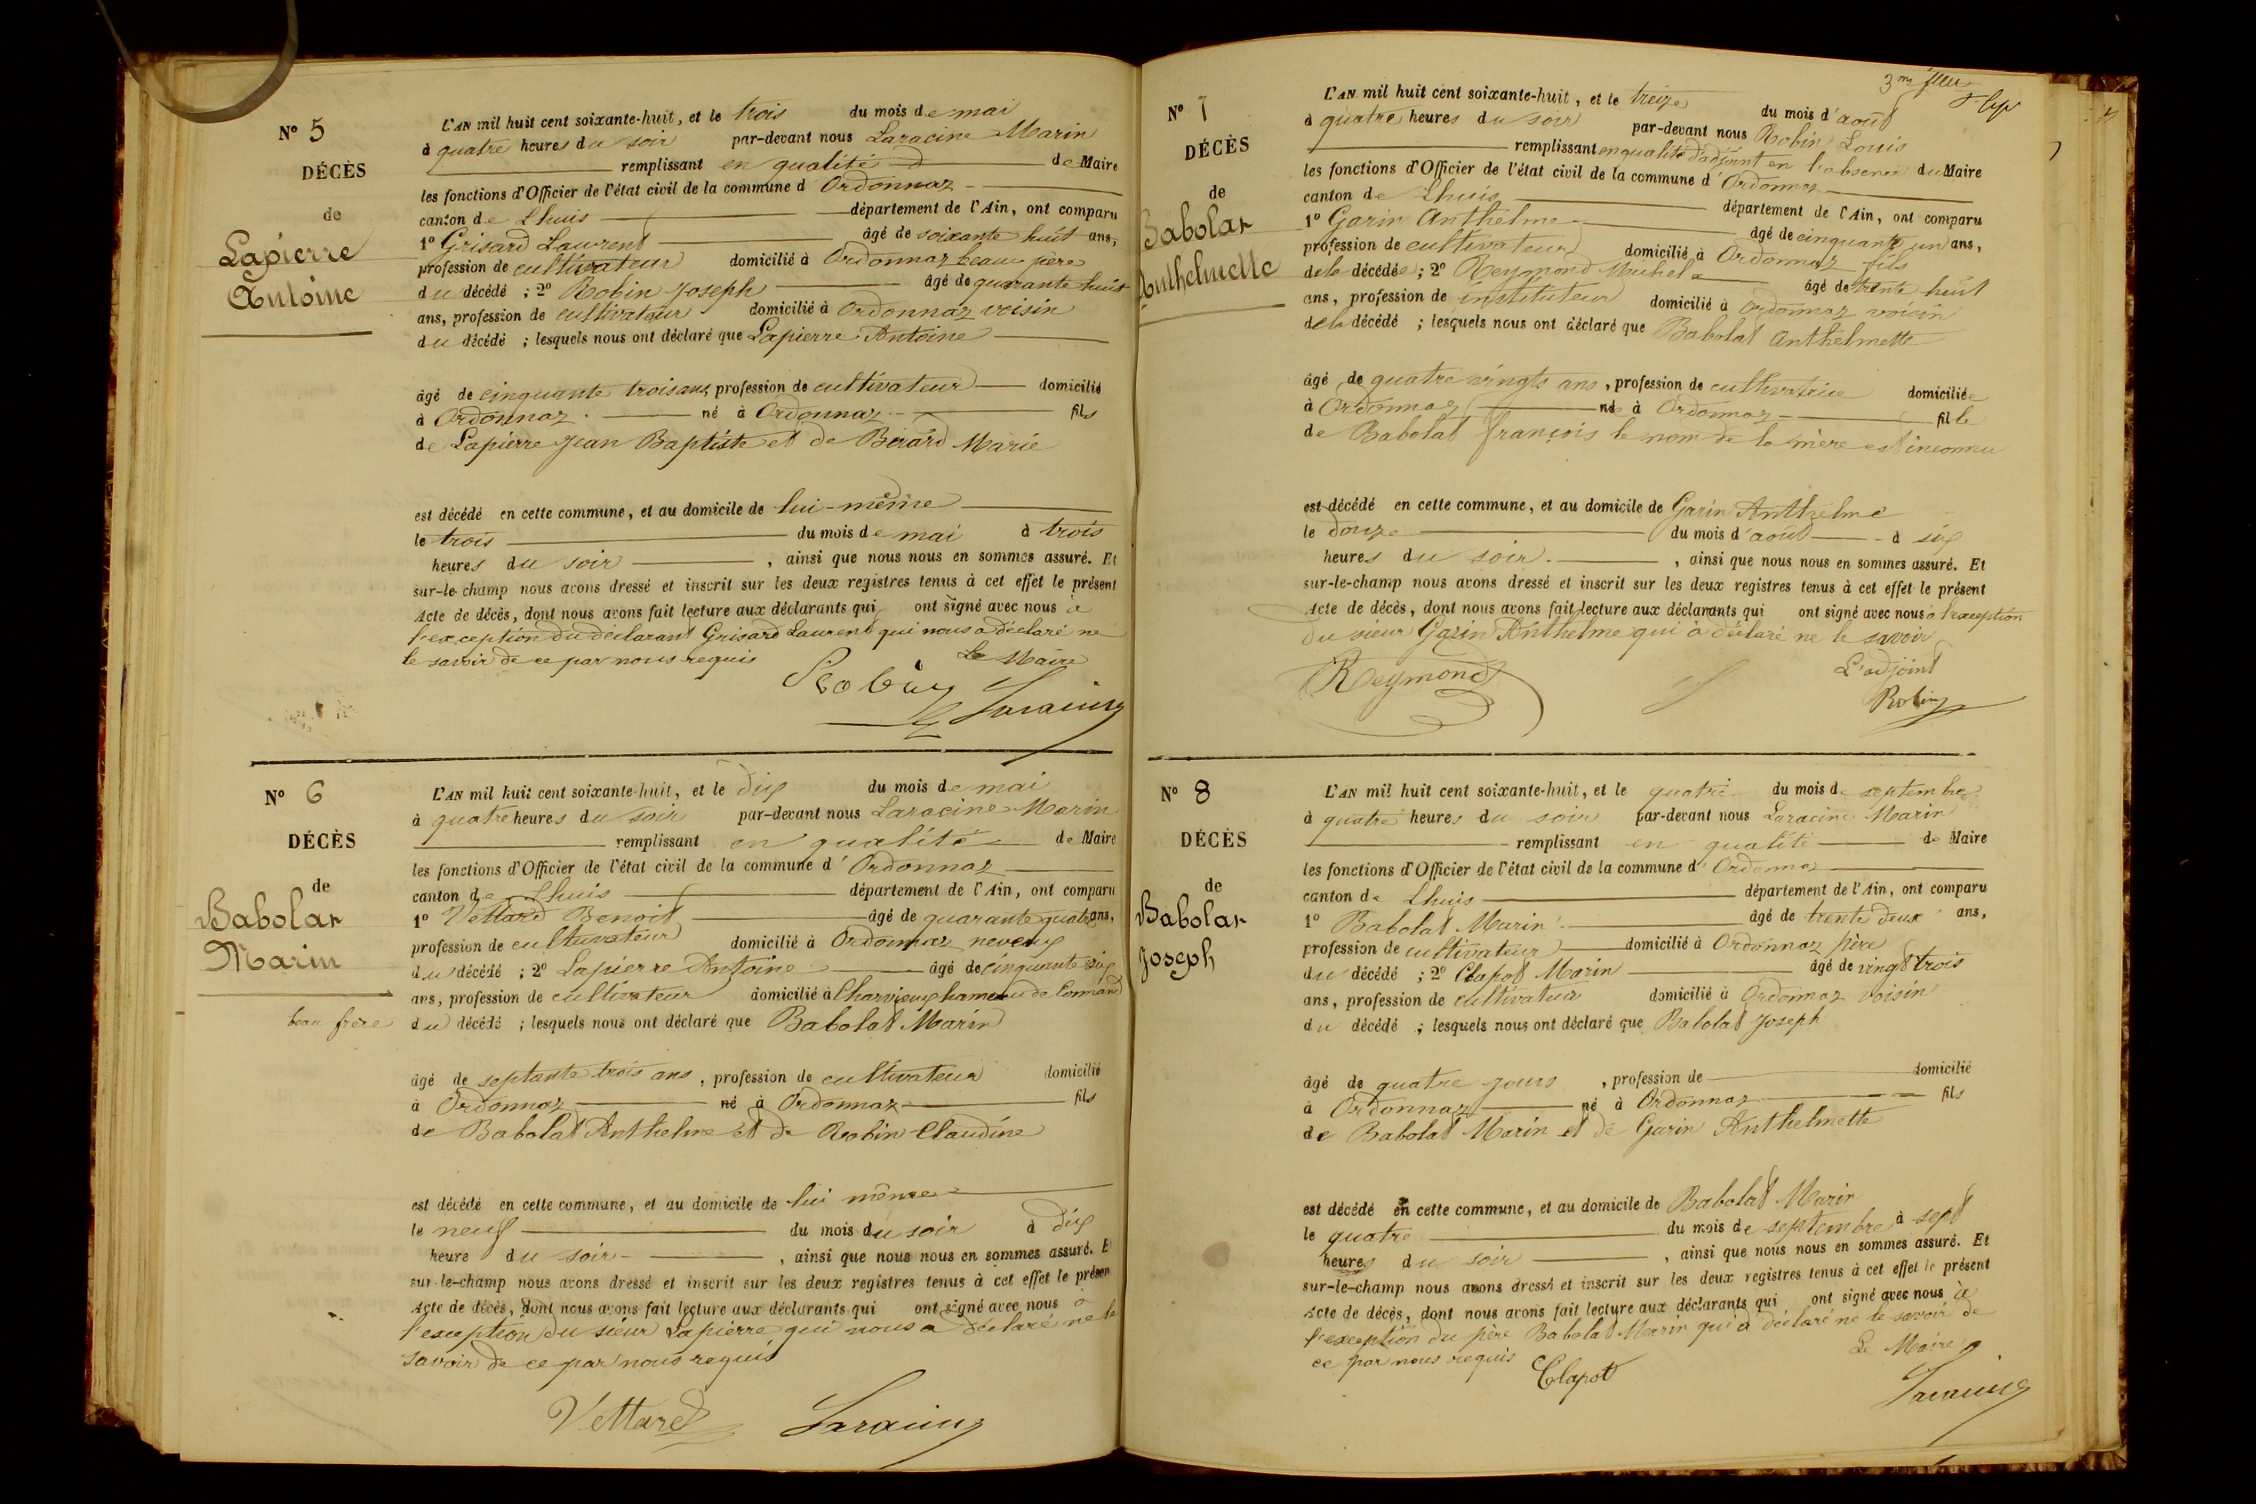 N° 5
DÉCÈS
de
Lapierre
Antoine
L'AN mil huit cent soixante-huit, et le trois du mois de mai
à quatre heures du soir par-devant nous Laracine Marin
remplissant en qualité de Maire
les fonctions d'Officier de l'état civil de la commune d' Ordonnaz
canton de Lhuis département de l'Ain, ont comparu
1° Grisard Laurent âgé de soixante huit ans,
profession de cultivateur domicilié à Ordonnaz beau père
du décédé ; 2° Robin Joseph âgé de quarante huit
ans, profession de cultivateur domicilié à Ordonnaz voisin
du décédé ; lesquels nous ont déclaré que Lapierre Antoine
âgé de cinquante trois ans, profession de cultivateur domicilié
à Ordonnaz né à Ordonnaz fils
de Lapierre Jean Baptiste et de Bérard Marie
est décédé en cette commune, et au domicile de lui-même
le trois du mois de mai à trois
heures du soir , ainsi que nous nous en sommes assuré. Et
sur-le-champ nous avons dressé et inscrit sur les deux registres tenus à cet effet le présent
Acte de décès, dont nous avons fait lecture aux déclarants qui ont signé avec nous à
l'exception du déclarant Grisard Laurent qui nous a déclaré ne
le savoir de ce par nous requis Le Maire
Robin Laracine
N° 6
DÉCÈS
de
Babolat
Marin
beau frère
L'AN mil huit cent soixante-huit, et le dix du mois de mai
à quatre heures du soir par-devant nous Laracine Marin
remplissant en qualité de Maire
les fonctions d'Officier de l'état civil de la commune d' Ordonnaz
canton de Lhuis département de l'Ain, ont comparu
1° Vettard Benoit âgé de quarante quatre ans,
profession de cultivateur domicilié à Ordonnaz neveux
du décédé ; 2° Lapierre Antoine âgé de cinquante six
ans, profession de cultivateur domicilié à Charvieux hameau de
du décédé ; lesquels nous ont déclaré que Babolat Marin
âgé de septante trois ans, profession de cultivateur domicilié
à Ordonnaz né à Ordonnaz fils
de Babolat Anthelme et de Robin Claudine
est décédé en cette commune, et au domicile de lui même
le neuf du mois du soir à dix
heure du soir , ainsi que nous nous en sommes assuré. E
sur-le-champ nous avons dressé et inscrit sur les deux registres tenus à cet effet le présen
Acte de décès, dont nous avons fait lecture aux déclarants qui ont signé avec nous à
l'exception du sieur Lapierre qui nous a déclaré ne le
savoir de ce par nous requis
Vettard Laracine
3me
N° 7
DÉCÈS
de
Babolat
Anthelmette
L'AN mil huit cent soixante-huit, et le treize du mois d'août
à quatre heures du soir par-devant nous Robin Louis
remplissant en qualité d'adjoint en l'absence du Maire
les fonctions d'Officier de l'état civil de la commune d' Ordonnaz
canton de Lhuis département de l'Ain, ont comparu
1° Garin Anthelme âgé de cinquante un ans,
profession de cultivateur domicilié à Ordonnaz fils
de la décédée ; 2° Reymond Michel âgé de trente huit
ans, profession de instituteur domicilié à Ordonnaz voisin
de la décédé ; lesquels nous ont déclaré que Babolat Anthelmette
âgé de quatre vingts ans, profession de cultivatrice domiciliée
à Ordonnaz née à Ordonnaz fille
de Babolat françois le nom de la mère est inconnu
est décédé en cette commune, et au domicile de Garin Anthelme
le douze du mois d'août à six
heures du soir , ainsi que nous nous en sommes assuré. Et
sur-le-champ nous avons dressé et inscrit sur les deux registres tenus à cet effet le présent
Acte de décès, dont nous avons fait lecture aux déclarants qui ont signé avec nous à l'exception
du sieur Garin Anthelme qui à déclaré ne le savoir
L'adjoint
Reymond Robin
N° 8
DÉCÈS
de
Babolat
Joseph
L'AN mil huit cent soixante-huit, et le quatre du mois de septembre
à quatre heures du soir par-devant nous Laracine Marin
remplissant en qualité de Maire
les fonctions d'Officier de l'état civil de la commune d' Ordonnaz
canton de Lhuis département de l'Ain, ont comparu
1° Babolat Marin âgé de trente deux ans,
profession de cultivateur domicilié à Ordonnaz père
du décédé ; 2° Clapot Marin âgé de vingt trois
ans, profession de cultivateur domicilié à Ordonnaz voisin
du décédé ; lesquels nous ont déclaré que Babolat Joseph
âgé de quatre jours , profession de domicilié
à Ordonnaz né à Ordonnaz fils
de Babolat Marin et de Garin Anthelmette
est décédé en cette commune, et au domicile de Babolat Marin
le quatre du mois de septembre à sept
heures du soir , ainsi que nous nous en sommes assuré. Et
sur-le-champ nous avons dressé et inscrit sur les deux registres tenus à cet effet le présent
Acte de décès, dont nous avons fait lecture aux déclarants qui ont signé avec nous à
l'exception du père Babolat Marin qui a déclaré ne le savoir de
ce par nous requis Le Maire
Clapot Laracine